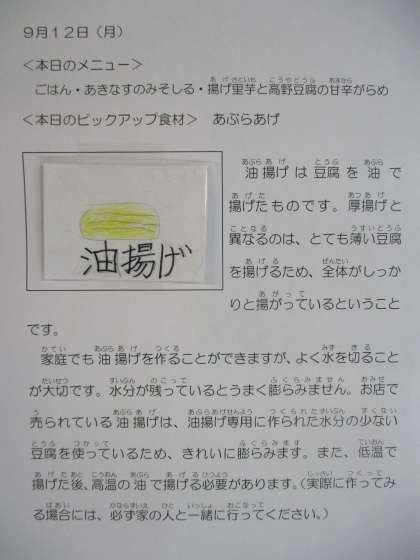 9月12日（月）
＜本日のメニュー＞
ごはん・あきなすのみそしる・揚げ里芋と高野豆腐の甘辛がらめ
＜本日のピックアップ食材＞　あぶらあげ
油揚げ
油揚げは豆腐を油で
揚げたものです。厚揚げと
異なるのは、とても薄い豆腐
を揚げるため、全体がしっか
りと揚がっているということ
です。
家庭でも油揚げを作ることができますが、よく水を切ること
が大切です。水分が残っているとうまく膨らみません。お店で
売られている油揚げは、油揚げ専用に作られた水分の少ない
豆腐を使っているため、きれいに膨らみます。また、低温で
揚げた後、高温の油で揚げる必要があります。（実際に作ってみ
る場合には、必ず家の人と一緒に行ってください。）